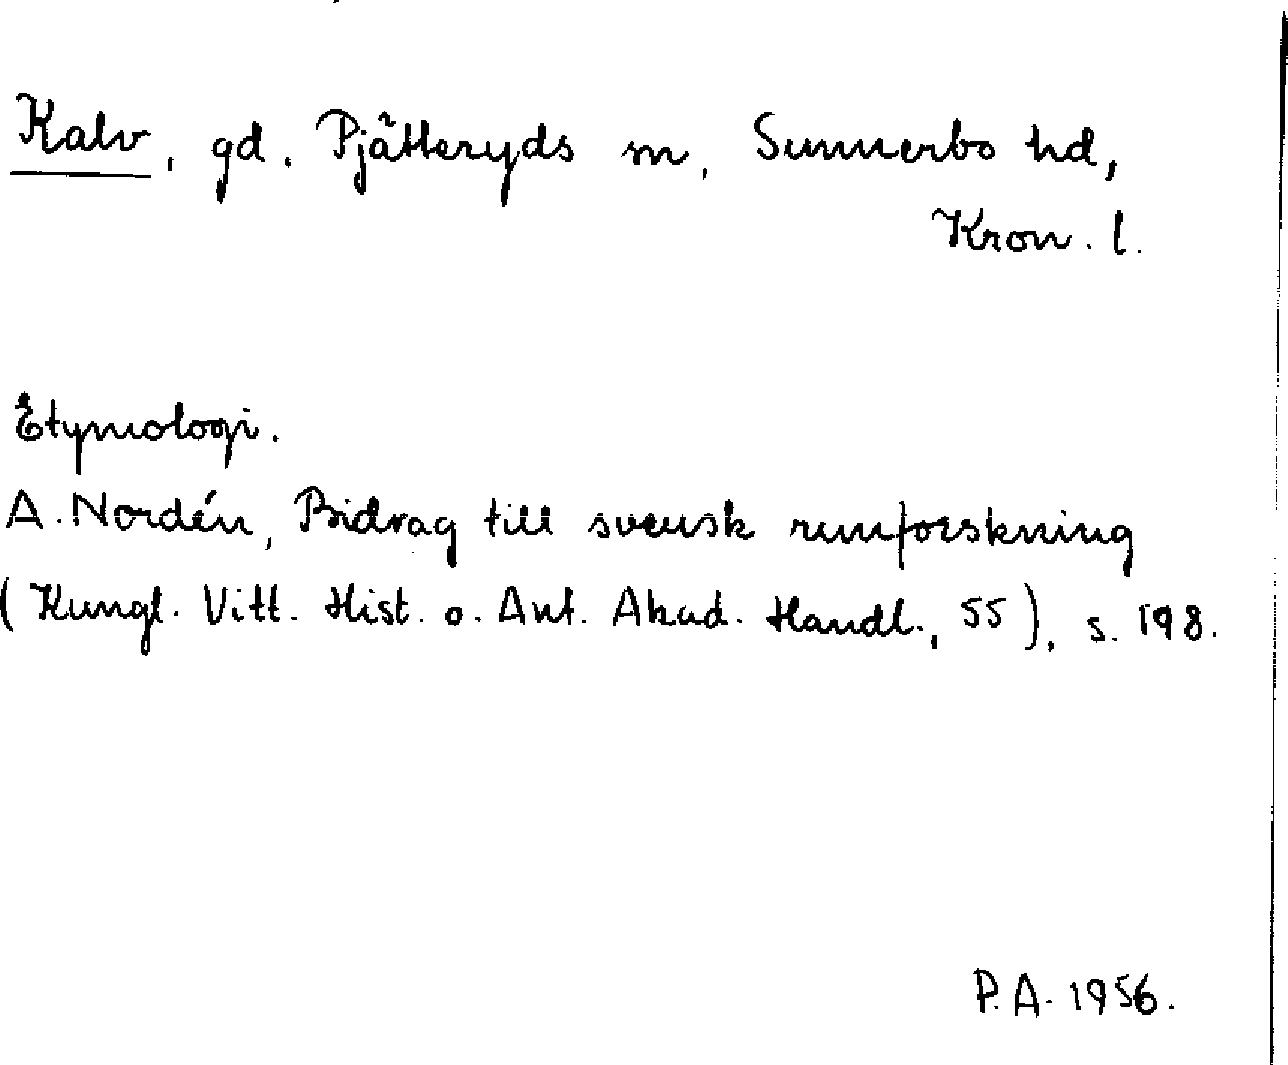 Kalv, gd. Pjätteryds sn, Sunnerbo hd,
Kron. l.
Etymologi.
A. Nordén, Bidrag till svensk runforskning
(Kungl. Vitt. Hist. o. Ant. Akad. Handl., 55), s. 198.
P. A. 1956.